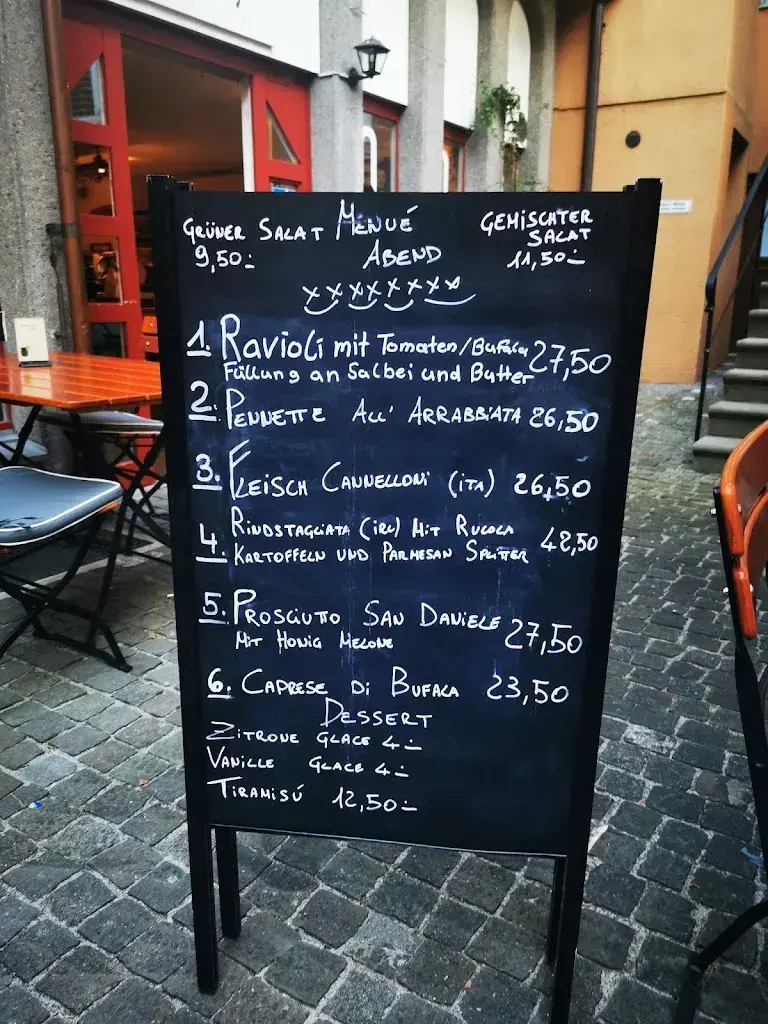 GRÜNER SALAT
9,50.-
MENUÉ
ABEND
GEMISCHTER
SALAT
11,50.-
1. Ravioli mit Tomaten/Bufala 27,50
Füllung an Salbei und Butter
2. PENNETTE ALL' ARRABBIATA 26,50
3. FLEISCH CANNELLONI (ITA) 26,50
4. RINDSTAGLIATA (IRL) MIT RUCOLA
KARTOFFELN UND PARMESAN SPLITTER 42,50
5. PROSCIUTTO SAN DANIELE 27,50
MIT HONIG MELONE
6. CAPRESE DI BUFALA 23,50
DESSERT
ZITRONE GLACE 4.-
VANILLE GLACE 4.-
TIRAMISÚ 12,50.-